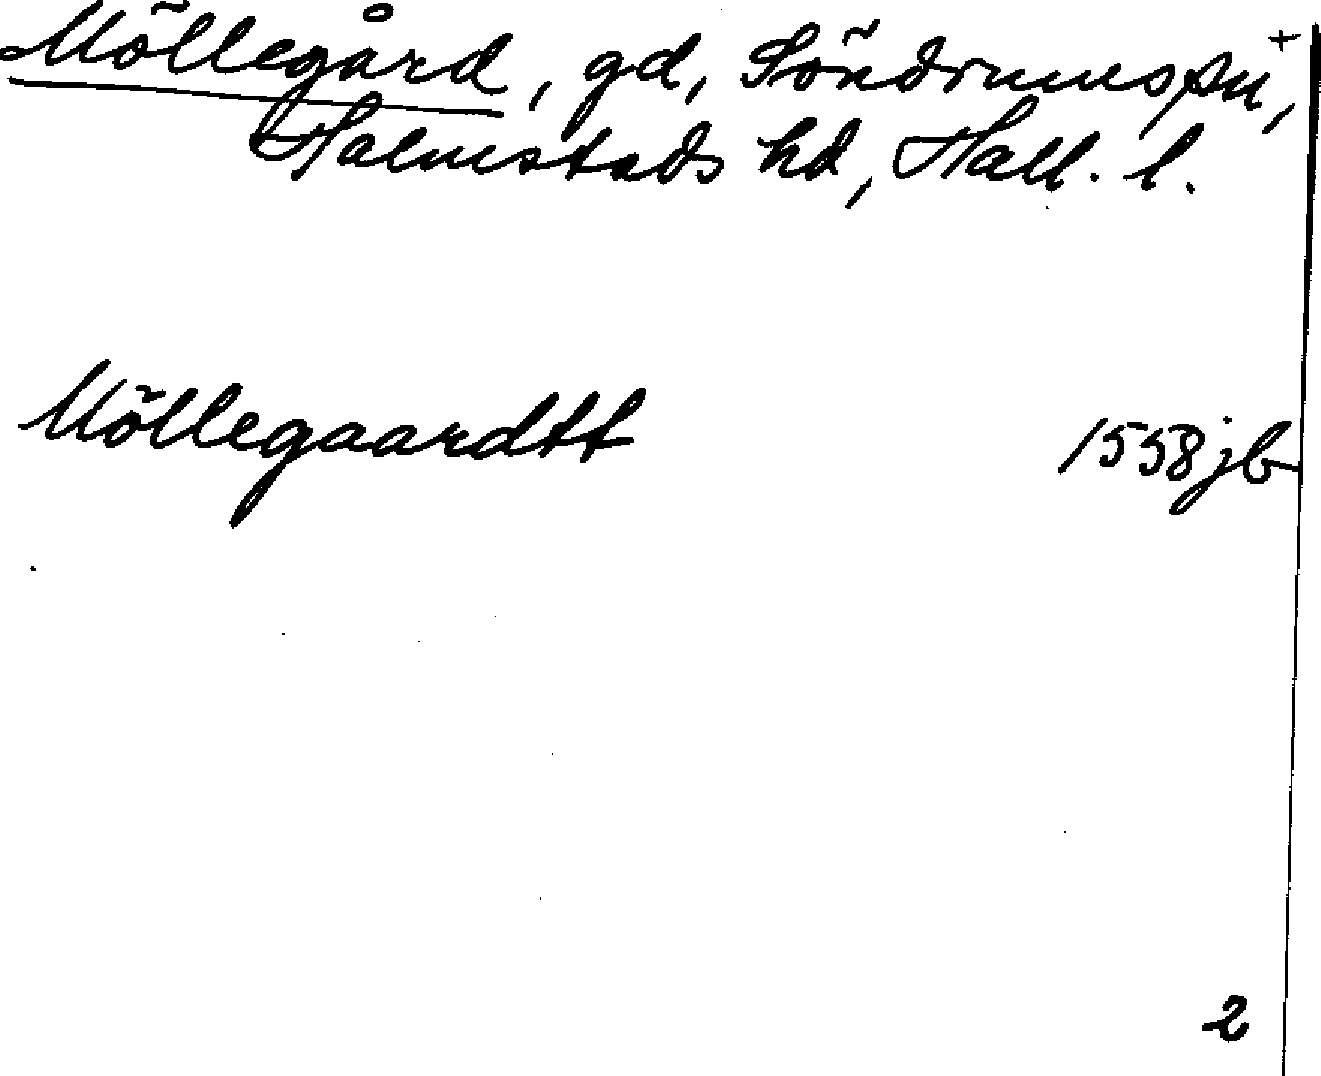 Möllegård, gd, Söndrums sn, +
Halmstads hd, Hall. l.
Möllegaardtt 1558 jb
2